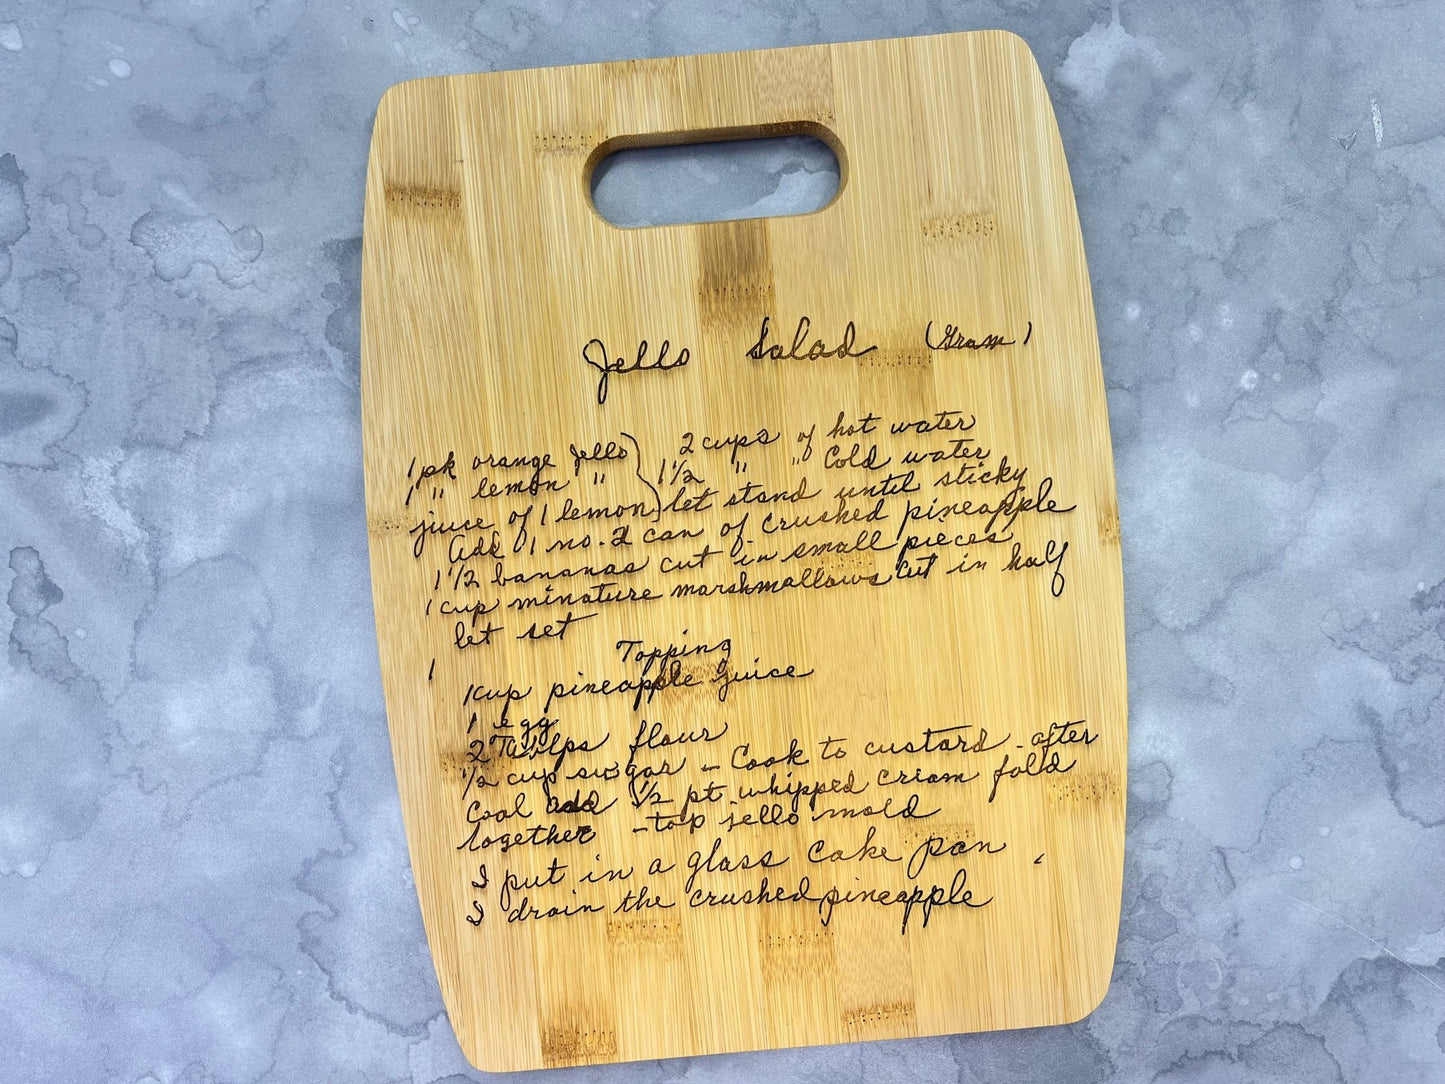 Jello Salad (Gram)
1 pk orange Jello 2 cups of hot water
1 " lemon " 1 1/2 " " Cold water
juice of 1 lemon let stand until sticky
Add 1 no. 2 can of crushed pineapple
1 1/2 bananas cut in small pieces
1 cup minature marshmallows cut in half
let set
1
Topping
1 cup pineapple juice
1 egg
2 Tablps flour
1/2 cup sugar - Cook to custard - after
Cool add 1/2 pt whipped cream fold
together - top jello mold
I put in a glass cake pan
I drain the crushed pineapple